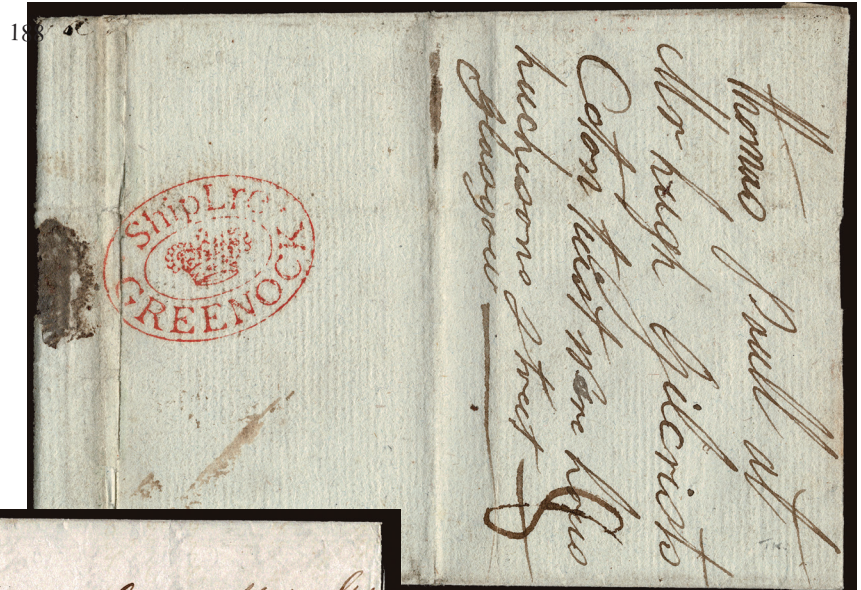 188
Ship Lre
GREENOCK
Thomas Powell at
Mr hugh Gilcrists
Coton twist Ware hous
huchisons Street
Glasgow
8